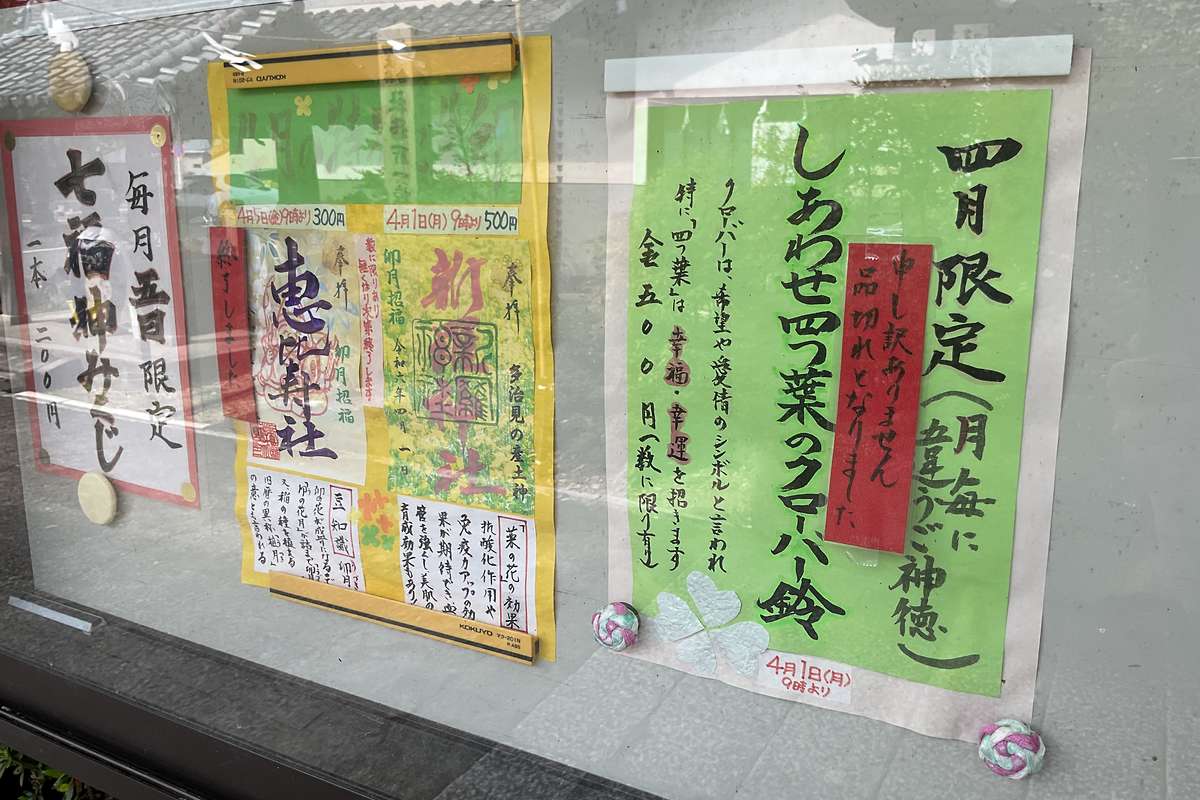 四月限定(月毎に違うご神徳)
申し訳ありません
品切れとなりました
しあわせ四つ葉のクローバー鈴
クローバーは、希望や愛情のシンボルと言われ
特に「四つ葉」は幸福・幸運を招きます
金五〇〇円(数に限り有)
4月1日(月)
9時より
KOKUYO
4月1日(月)9時より500円
奉拝
多治見の産土神
新羅神社
卯月招福
令和六年四月一日
数に限りあり
無くなり次第終了します。
4月5日(金)9時より300円
奉拝
卯月招福
恵比寿社
終了しました
「菜の花」の効果
抗酸化作用や
免疫力アップの効
果が期待でき、血
管を強く美肌の
育成効果もあり
豆知識
卯月
KOKUYO マク-201N
毎月五日限定
七福神みくじ
一本 二〇〇円